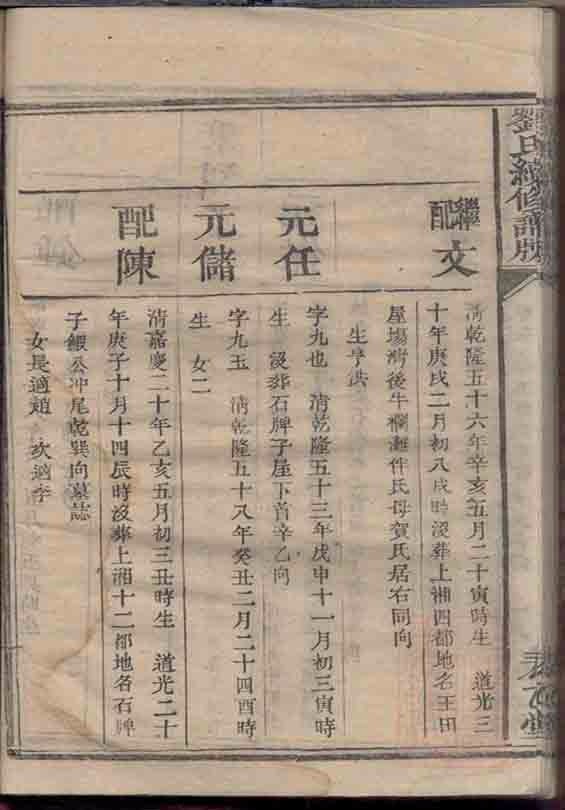 劉氏續修譜牒
繼配 文
清乾隆五十六年辛亥五月二十寅時生 道光三
十年庚戌二月初八戌時沒葬上湘四都地名王田
屋場灣後牛欄灘伴氏母賀氏居右同向
生子洪
元任
字九也 清乾隆五十三年戊申十一月初三寅時
生 沒葬石牌子屋下首辛乙向
元儲
字九玉 清乾隆五十八年癸丑二月二十四酉時
生 女二
配陳
清嘉慶二十年乙亥五月初三丑時生 道光二十
年庚子十月十四辰時沒葬上湘十二都地名石牌
子鍛公冲尾乾巽向墓誌
女長適趙 次適李